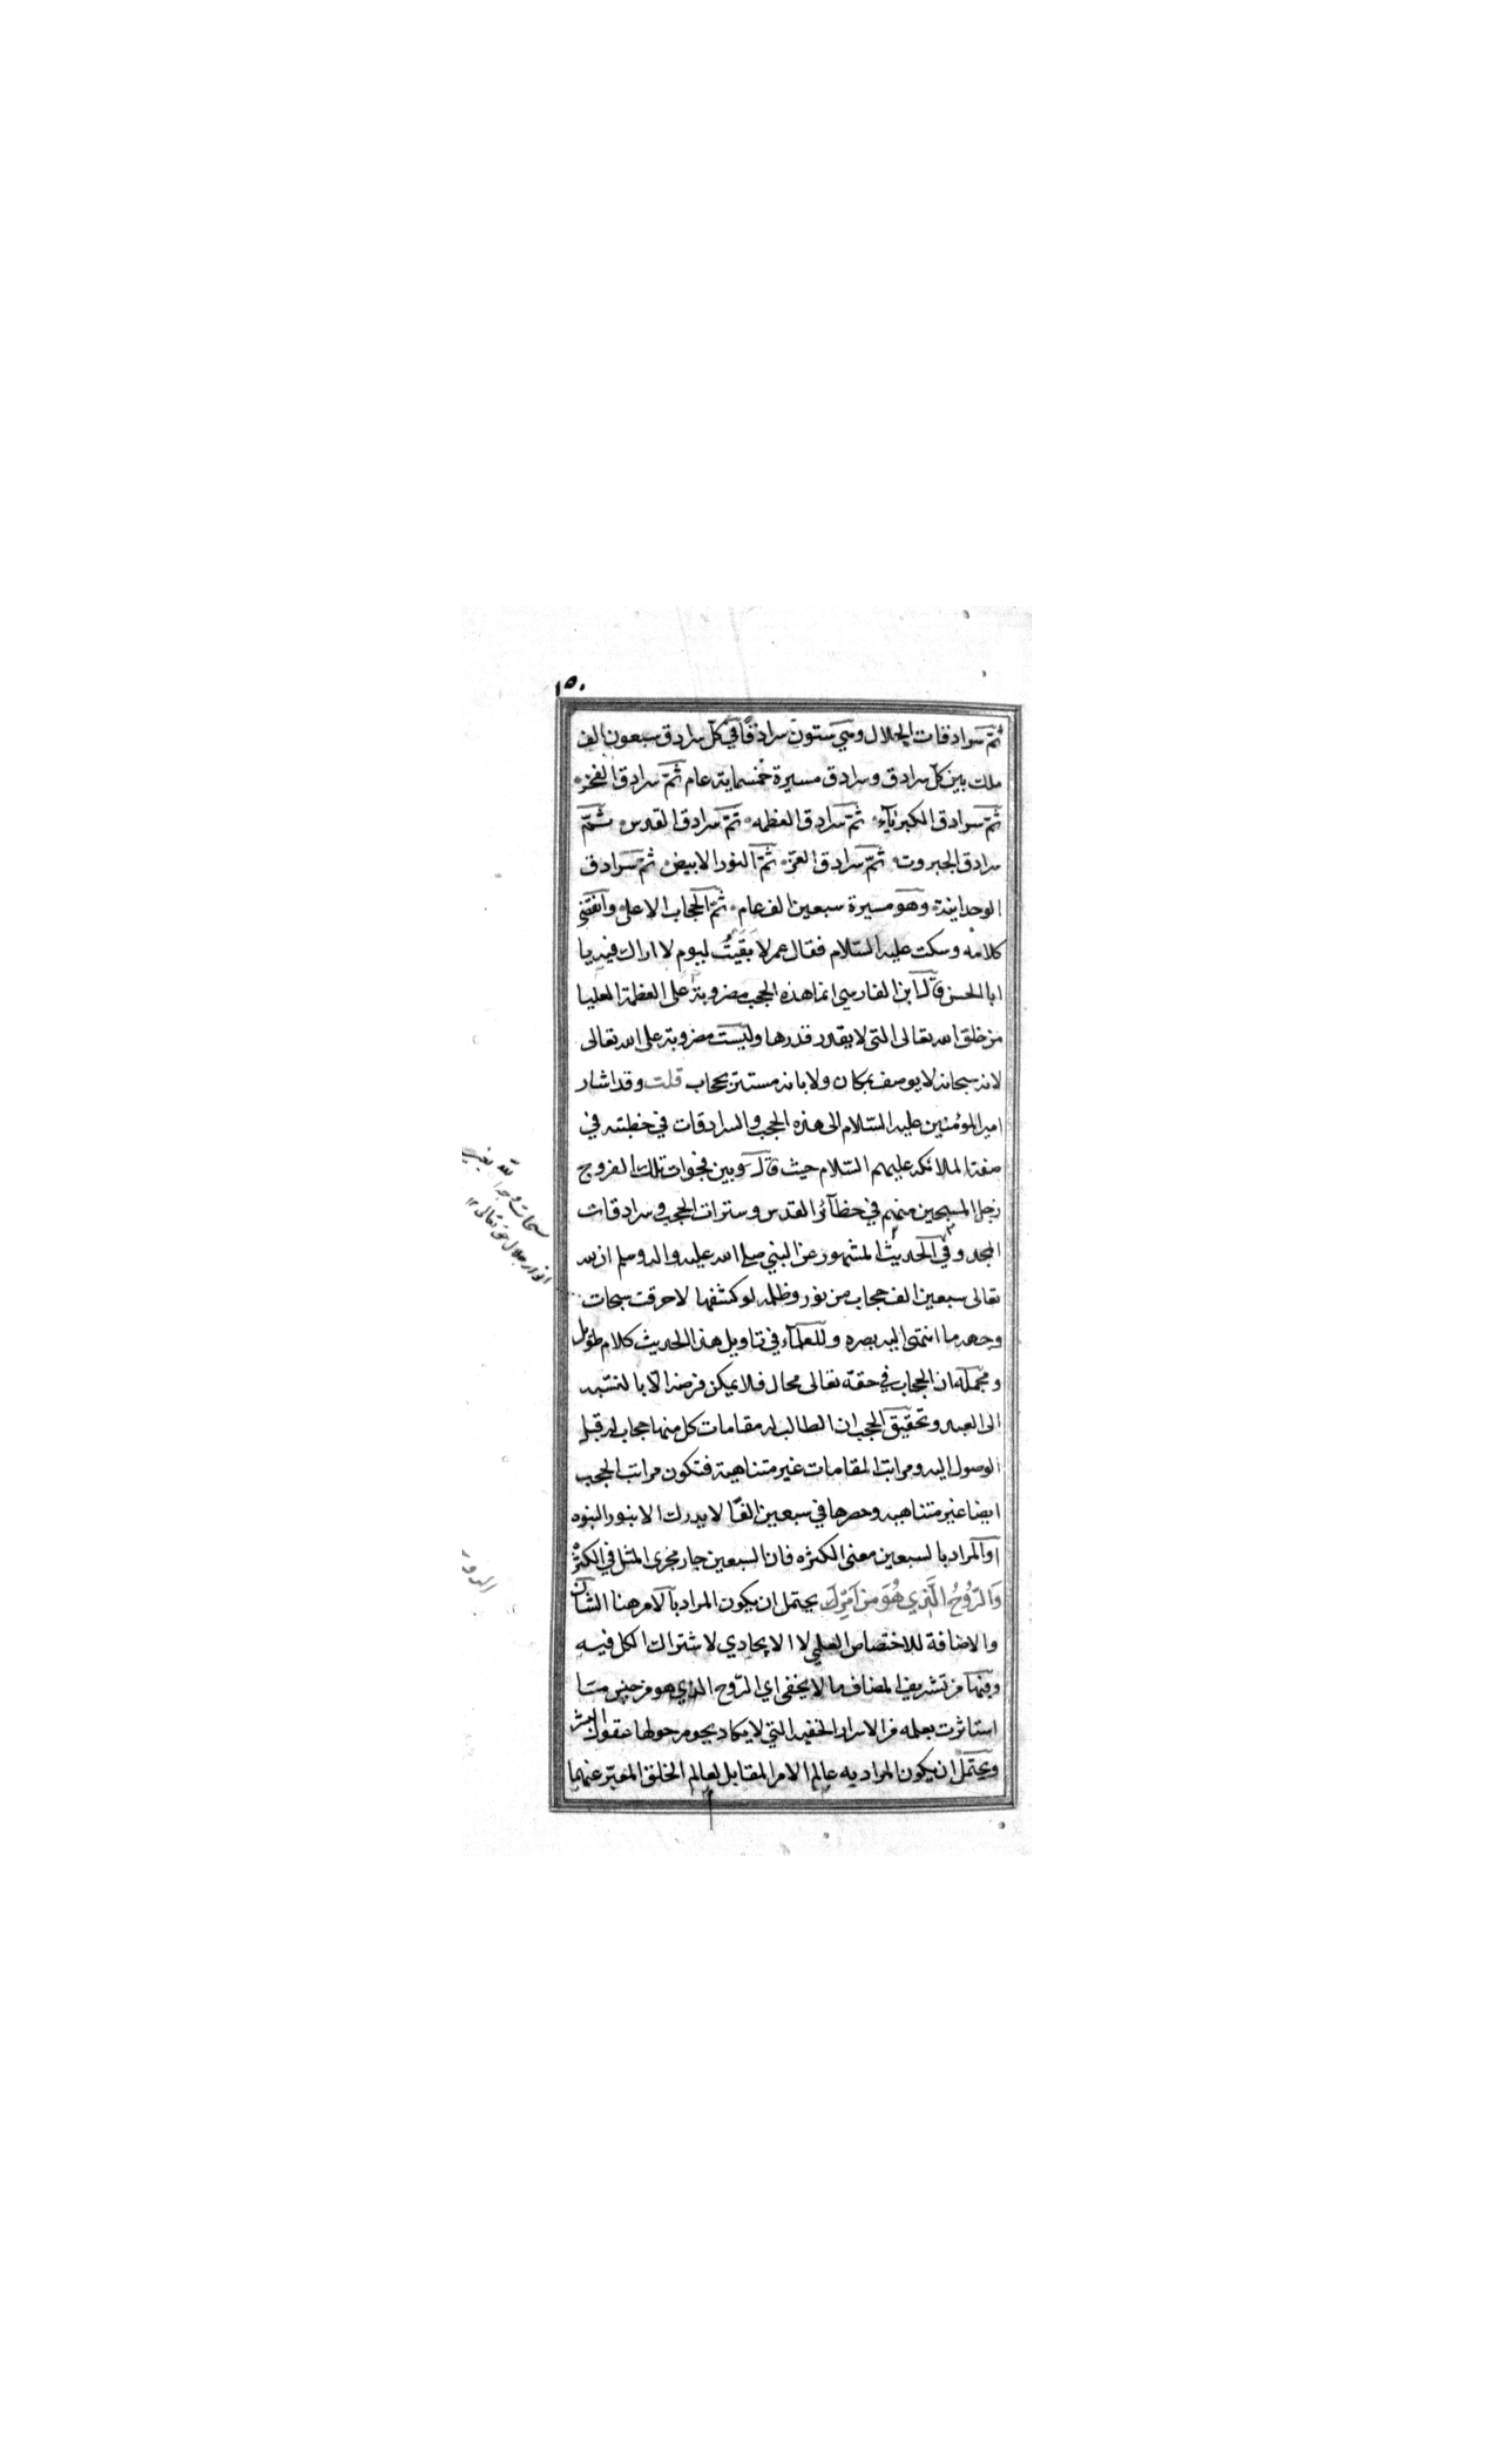 ١٥٠
ثمّ سرادقات الجلال وهي ستون سرادقًا في كلّ سرادق سبعون الف
ملك بين كلّ سرادق وسرادق مسيرة خمسماية عام ثمّ سرادق الفخر
ثمّ سرادق الكبرياء ثمّ سرادق العظمه ثمّ سرادق القدس ثمّ
سرادق الجبروت ثمّ سرادق العزّ ثمّ النور الابيض ثمّ سرادق
الوحدانية وهو مسيرة سبعين الف عام ثمّ الحجاب الاعلى وانقضى
كلامه وسكت عليه السّلام فقال عمر لا بَقَيتُ ليوم لا اراك فيه يا
ابا الحسن قال ابن الفارسي انما هذه الحجب مضروبة على العظمة العليا
من خلق الله تعالى التى لا يقدر قدرها وليست مضروبة على الله تعالى
لانه سبحانه لا يوصف بمكان ولا بانه مستتر بحجاب قلت وقد اشار
امير المؤمنين عليه السّلام الى هذه الحجب والسرادقات في خطبته في
صفة الملائكه عليهم السّلام حيث قال وبين فجوات تلك الفروج
زجل المسبحين منهم في حظائر القدس وسترات الحجب وسرادقات
المجد وفي الحديث المشهور عن النبي صلى الله عليه واله وسلم ان لله
تعالى سبعين الف حجاب من نور وظلمه لو كشفها لاحرقت سبحات
وجهه ما انتهى اليه بصره وللعلماء في تاويل هذا الحديث كلام طويل
ومجمله ان الحجاب في حقه تعالى محال فلا يمكن فرضه الّا بالنسبه
الى العبد وتحقيق الحجب ان الطالب له مقامات كل منها حجاب له قبل
الوصول اليه ومراتب المقامات غير متناهية فتكون مراتب الحجب
ايضا غير متناهيه وحصرها في سبعين الفًا لا يدرك الا بنور النبوه
او المراد بالسبعين معنى الكثره فان السبعين جار مجرى المثل في الكثرة
وَالرُّوحُ الَّذِي هُوَ مِنْ اَمْرِكَ يحتمل ان يكون المراد بالامر هنا الشان
والاضافة للاختصاص العلمي لا الايجادي لاشتراك الكل فيه
وفيها من تشريف المضاف ما لا يخفى اي الرّوح الذي هو من جنس ما
استاثرت بعلمه من الاسرار الخفيه التي لا يكاد يحوم حولها عقول البشر
ويحتمل ان يكون المراد به عالم الامر المقابل لعالم الخلق المعبّر عنهما
سبحات وجه الله
انوار جلال حق تعالى ١٢
الروح